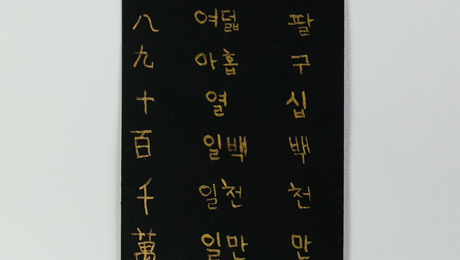 八 여덟 팔
九 아홉 구
十 열 십
百 일백 백
千 일천 천
萬 일만 만